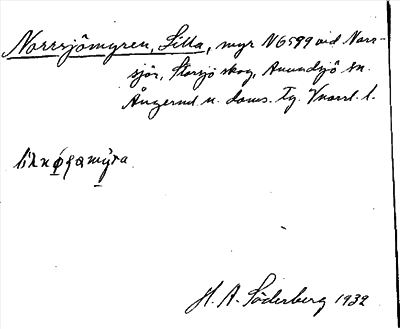 Norrsjömyren, Lilla, myr N6599 vid Norr-
sjön, Storsjö skog, Anundsjö sn.
Ångerml. n. doms. tg. Vnorrl. l.
H. A. Söderberg 1932